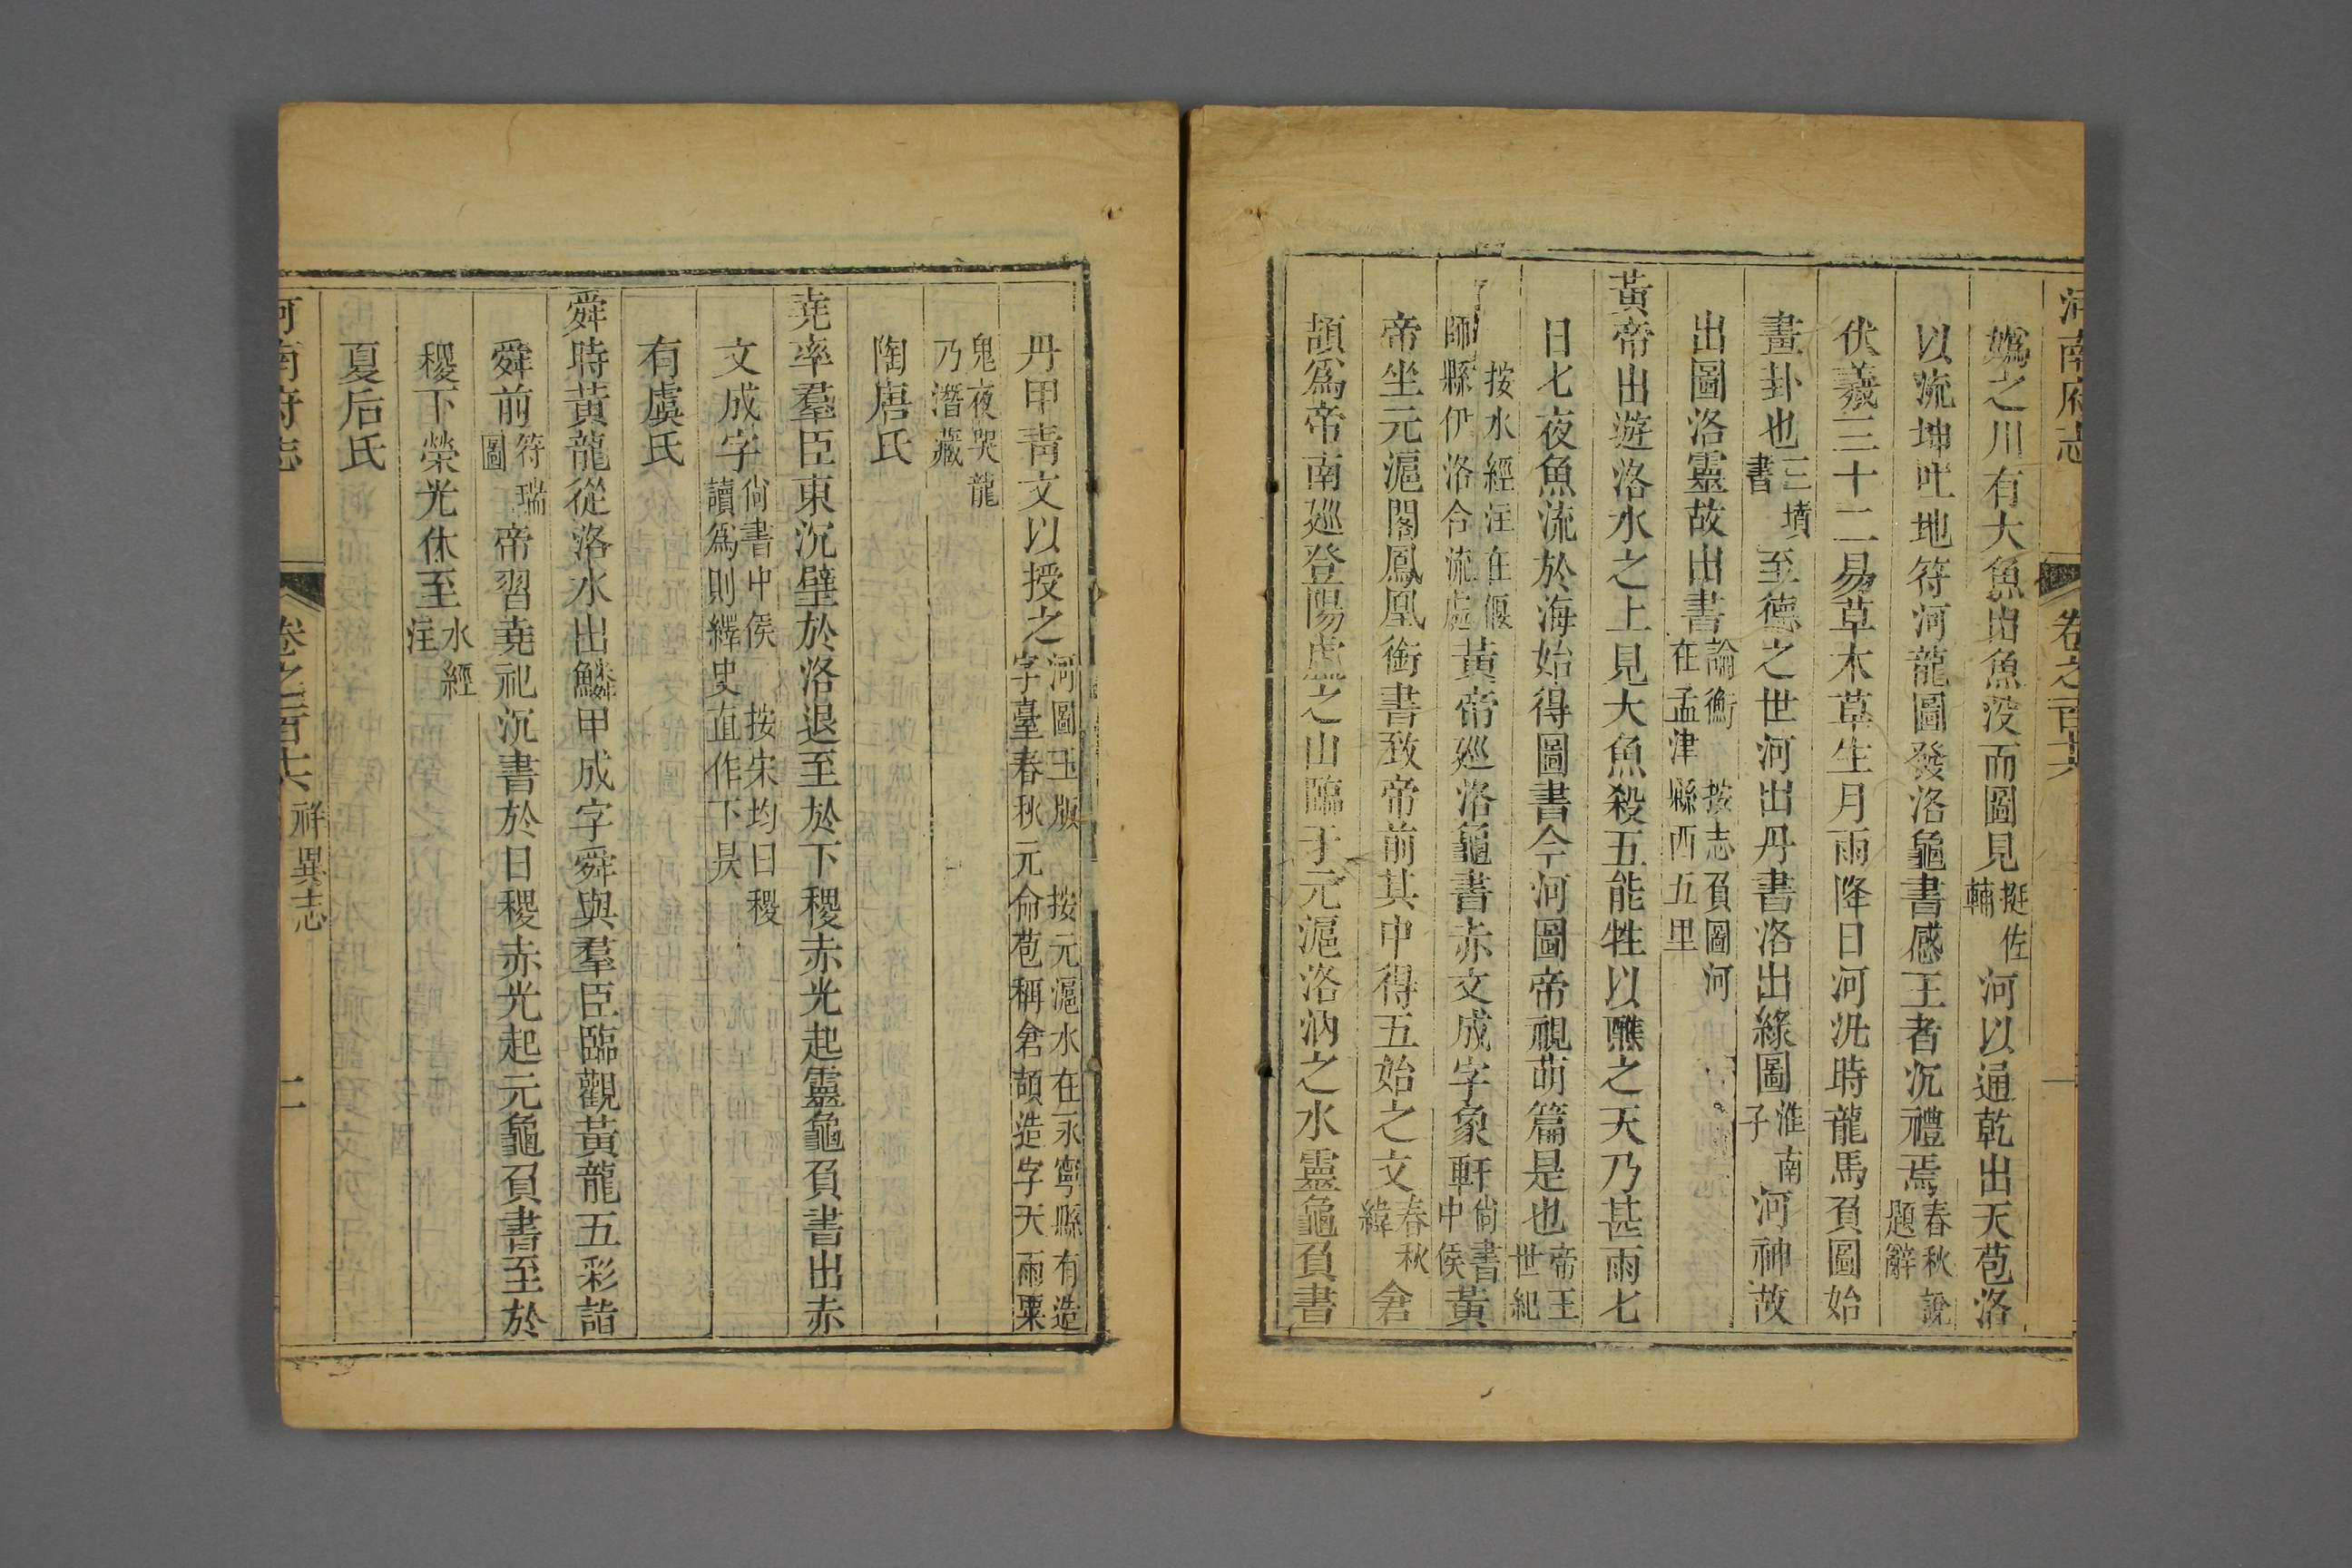 河南府志 卷之百十六 一
嬀之川有大魚出魚没而圖見挺佐輔河以通乾出天苞洛
以流坤吐地符河龍圖發洛龜書感王者沉禮焉春秋說題辭
伏羲三十二易草木草生月雨降日河汎時龍馬負圖始
畫卦也三墳書至德之世河出丹書洛出綠圖淮南子河神故
出圖洛靈故出書論衡 按志負圖河在孟津縣西五里
黃帝出遊洛水之上見大魚殺五能牲以醮之天乃甚雨七
日七夜魚流於海始得圖書今河圖帝視萌篇是也帝王世紀
按水經注在偃師縣伊洛合流處黃帝廵洛龜書赤文成字象軒尙書中侯黃
帝坐元滬閣鳳凰銜書致帝前其中得五始之文春秋緯倉
頡爲帝南廵登陽虛之山臨于元滬洛汭之水靈龜負書
丹甲靑文以授之河圖玉版 按元滬水在永寧縣有造字臺春秋元命苞稱倉頡造字天雨粟
鬼夜哭龍乃潛藏
陶唐氏
堯率羣臣東沉璧於洛退至於下稷赤光起靈龜負書出赤
文成字尙書中侯 按宋均曰稷讀爲則繹史直作下昃
有虞氏
舜時黃龍從洛水出鱗甲成字舜與羣臣臨觀黃龍五彩詣
舜前符瑞圖帝習堯祀沉書於日稷赤光起元龜負書至於
稷下榮光休至水經注
夏后氏
河南府志 卷之百十六 祥異志 二